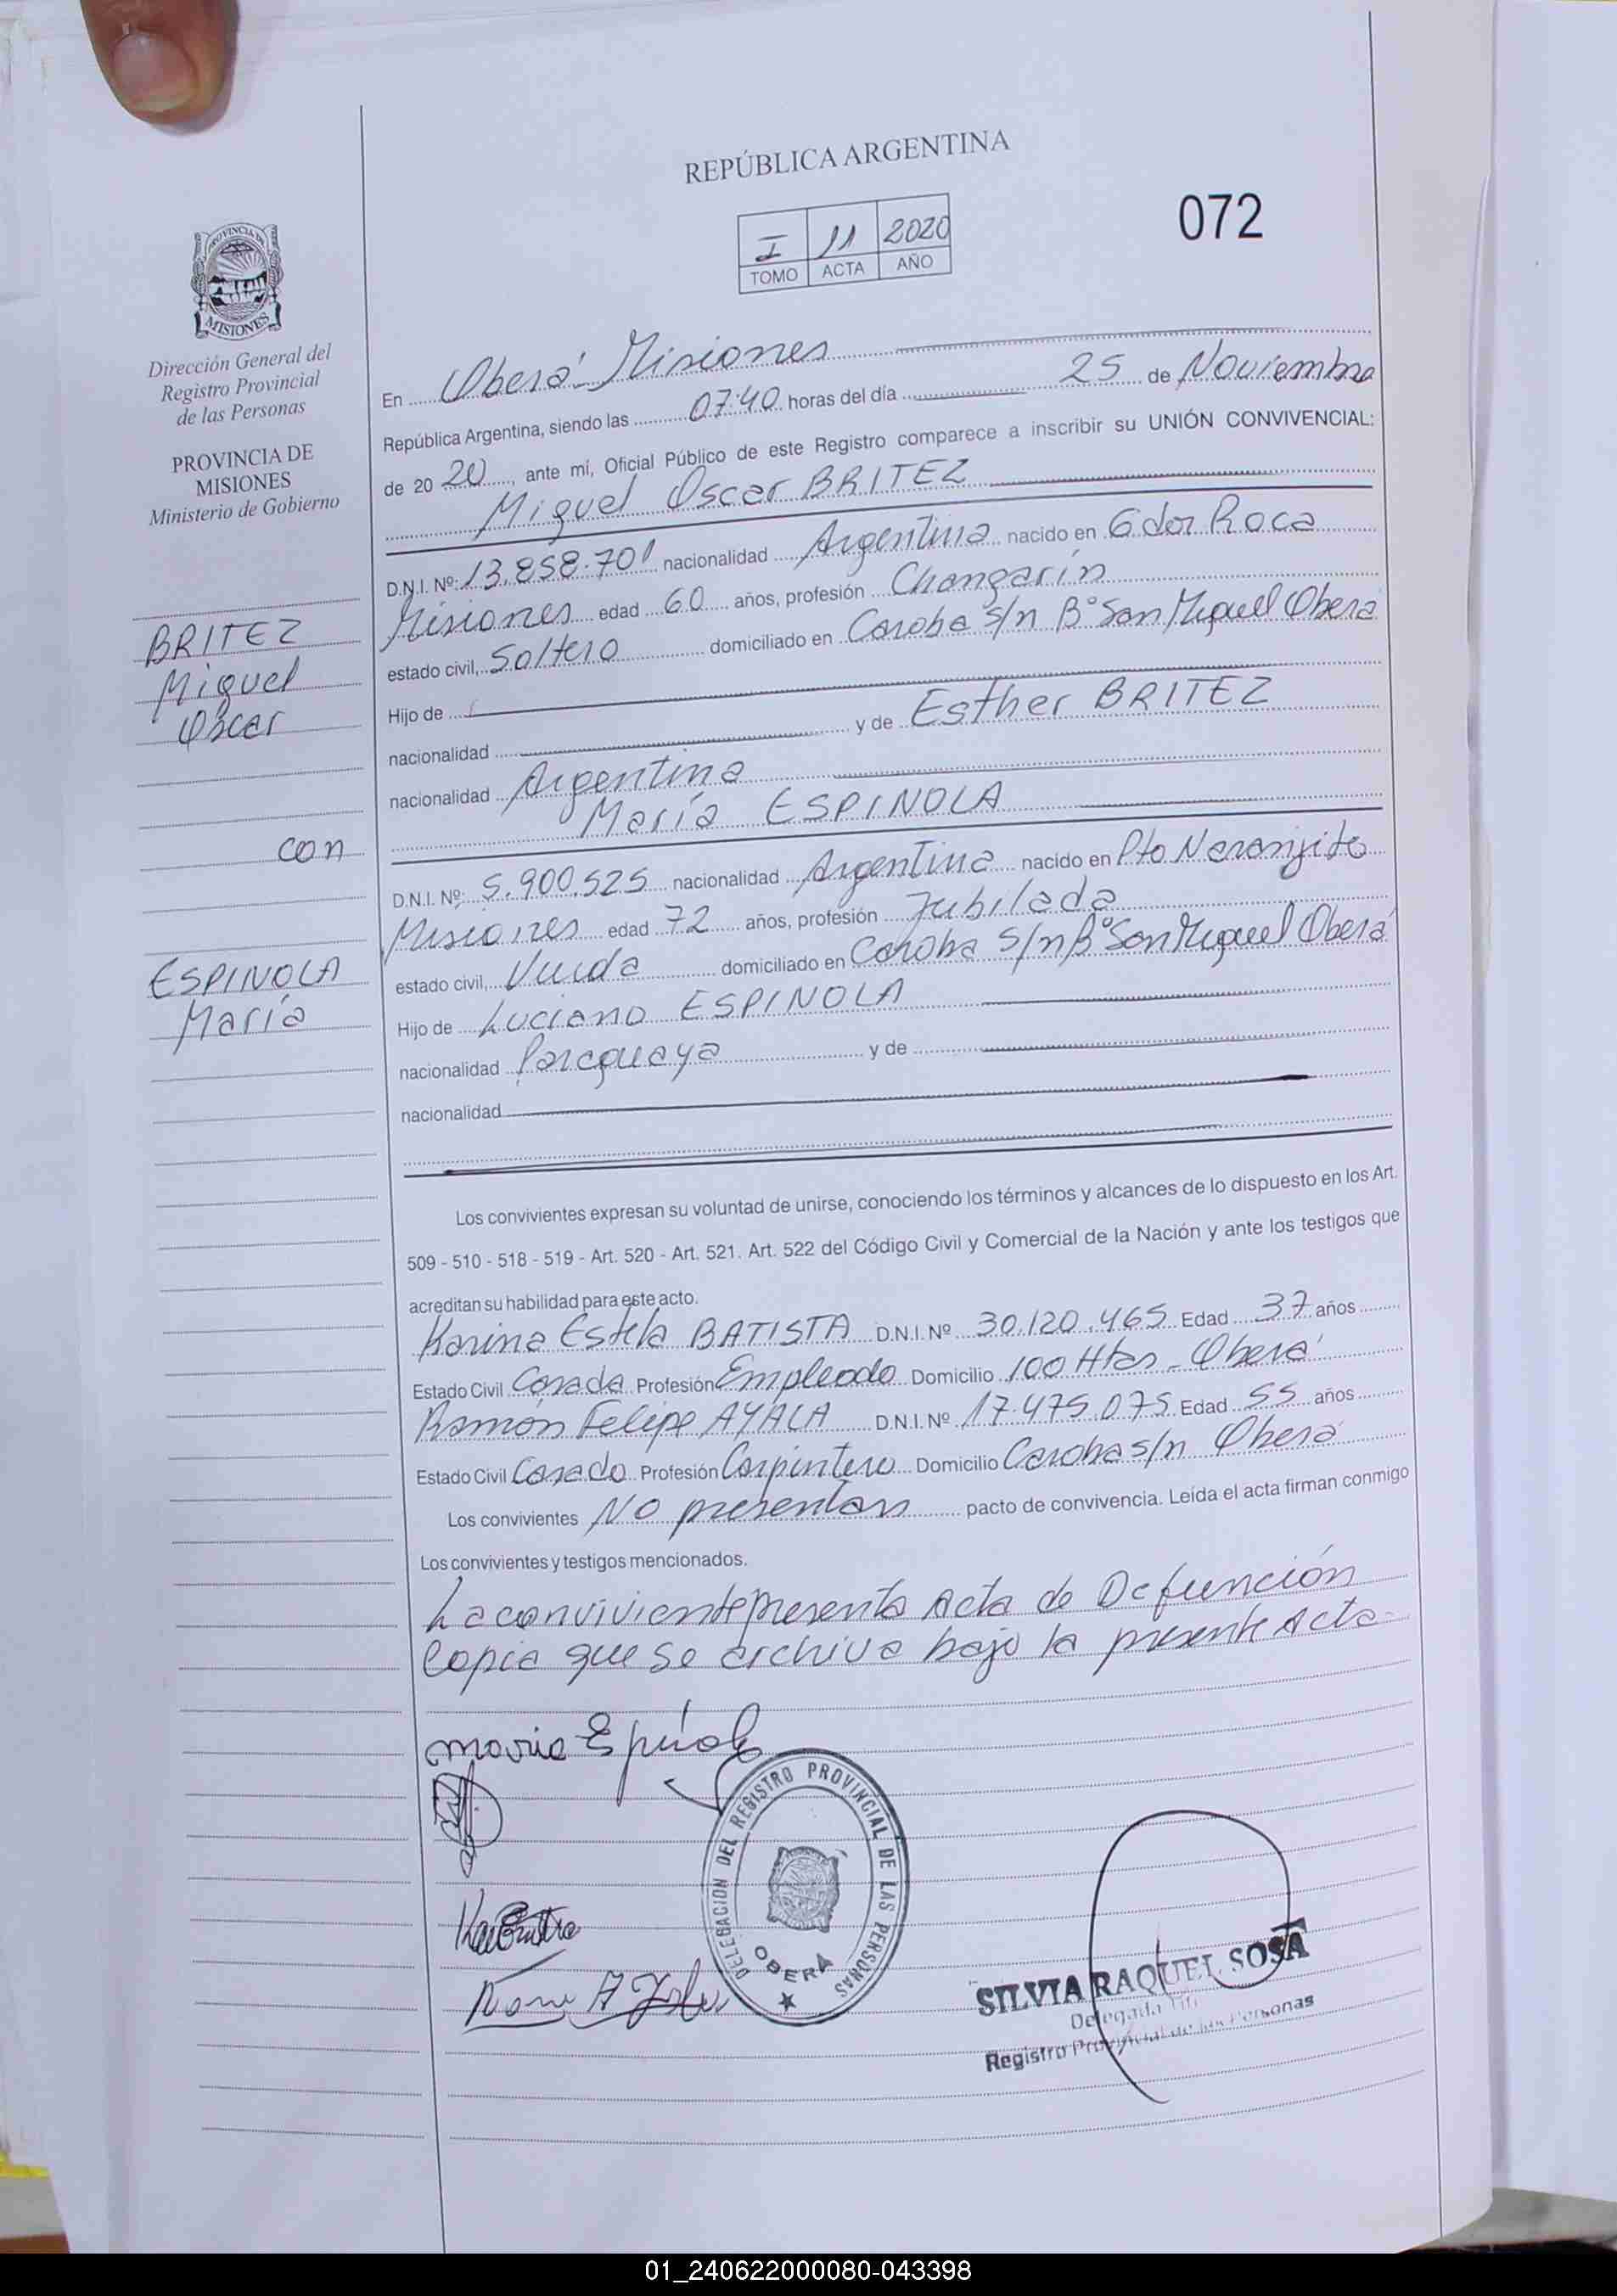 REPÚBLICA ARGENTINA
I 11 2020
TOMO ACTA AÑO
072
PROVINCIA DE
MISIONES
Dirección General del
Registro Provincial
de las Personas
PROVINCIA DE
MISIONES
Ministerio de Gobierno
BRITEZ
Miguel
Oscar
con
ESPINOLA
María
En Oberá Misiones
República Argentina, siendo las 07:40 horas del día 25 de Noviembre
de 20 20, ante mí, Oficial Público de este Registro comparece a inscribir su UNIÓN CONVIVENCIAL:
Miguel Oscar BRITEZ
D.N.I. Nº: 13.858.701 nacionalidad Argentina nacido en Gdor Roca
Misiones edad 60 años, profesión Changarín
estado civil, Soltero domiciliado en Caroba s/n B° San Miguel Oberá
Hijo de
nacionalidad y de Esther BRITEZ
nacionalidad Argentina
María ESPINOLA
D.N.I. Nº: 5.900.525 nacionalidad Argentina nacido en Pto Naranjito
Misiones edad 72 años, profesión Jubilada
estado civil, Viuda domiciliado en Caroba s/n B° San Miguel Oberá
Hijo de Luciano ESPINOLA
nacionalidad Paraguaya y de
nacionalidad
Los convivientes expresan su voluntad de unirse, conociendo los términos y alcances de lo dispuesto en los Art.
509 - 510 - 518 - 519 - Art. 520 - Art. 521. Art. 522 del Código Civil y Comercial de la Nación y ante los testigos que
acreditan su habilidad para este acto.
Karina Estela BATISTA D.N.I. Nº 30.120.465 Edad 37 años
Estado Civil Casada Profesión Empleada Domicilio 100 Htas - Oberá
Ramón Felipe AYALA D.N.I. Nº 17.475.075 Edad 55 años
Estado Civil Casado Profesión Carpintero Domicilio Caroba s/n Oberá
Los convivientes No presentan pacto de convivencia. Leída el acta firman conmigo
Los convivientes y testigos mencionados.
La conviviente presenta Acta de Defunción
Copia que se archiva bajo la presente Acta-
DELEGACION DEL REGISTRO PROVINCIAL DE LAS PERSONAS
OBERÁ
SILVIA RAQUEL SOSA
Delegada
Registro Provincial de las Personas
01_240622000080-043398